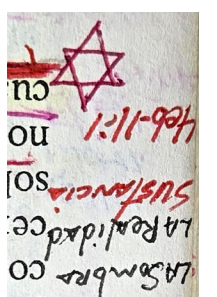 LA Sombra co
LA Realidad ce
SUSTANCIA sol
Heb-11:1 no
cu